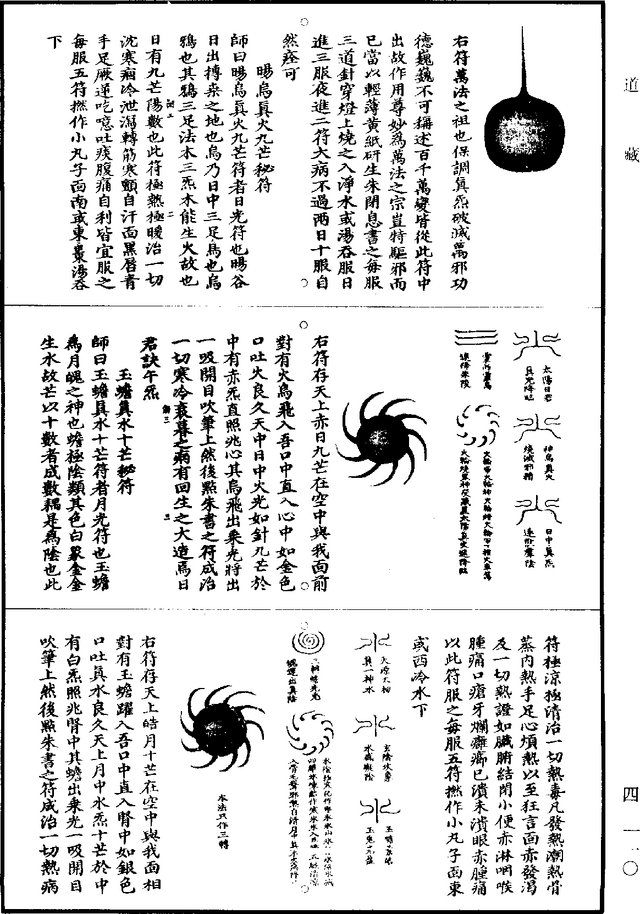 道藏
四一一〇
右符萬法之祖也保調眞炁破滅萬邪功
德巍巍不可稱述百千萬變皆從此符中
出故作用尊妙爲萬法之宗豈特驅邪而
已當以輕薄黃紙研生朱閉息書之每服
三道針穿燈上燒之入淨水或湯吞服日
進三服夜進二符大病不過兩日十服自
然痊可
暘烏眞火九芒祕符
師曰暘烏眞火九芒符者日光符也暘谷
日出搏桑之地也烏乃日中三足烏也烏
鴉也其鴉三足法本三炁木能生火故也
日有九芒陽數也此符極熱極暖治一切
沈寒痼冷泄瀉轉筋寒顫自汗面黑唇青
手足厥逆吃噫吐痰腹痛自利皆宜服之
每服五符撚作小丸子面南或東棗湯吞
下
太陽日君
眞光降胋
神烏眞火
燒滅邪精
日中眞炁
右符存天上赤日九芒在空中與我面前
對有火烏飛入吾口中直入心中如金色
口吐火良久天中日中火光如針九芒於
中有赤炁直照兆心其烏飛出乘光將出
一吸開目吹筆上然後點朱書之符成治
一切寒冷衰暮之病有回生之大造焉日
君訣午炁
玉蟾眞水十芒祕符
師曰玉蟾眞水十芒符者月光符也玉蟾
爲月魄之神也蟾極陰類其色白象金金
生水故芒以十數者成數耦是爲陰也此
符極涼極清治一切熱毒凡發熱潮熱骨
蒸内熱手足心煩熱以至狂言面赤發渴
及一切熱證如臟腑結閉小便赤淋咽喉
腫痛口瘡牙爛癰癤已潰未潰眼赤腫痛
以此符服之每服五符撚作小丸子西東
或西冷水下
眞一神水
本法只作三轉
右符存天上皓月十芒在空中與我面相
對有玉蟾躍入吾口中直入腎中如銀色
口吐眞水良久天上月中水炁十芒於中
有白炁照兆腎中其蟾出乘光一吸開目
吹筆上然後點朱書之符成治一切熱病